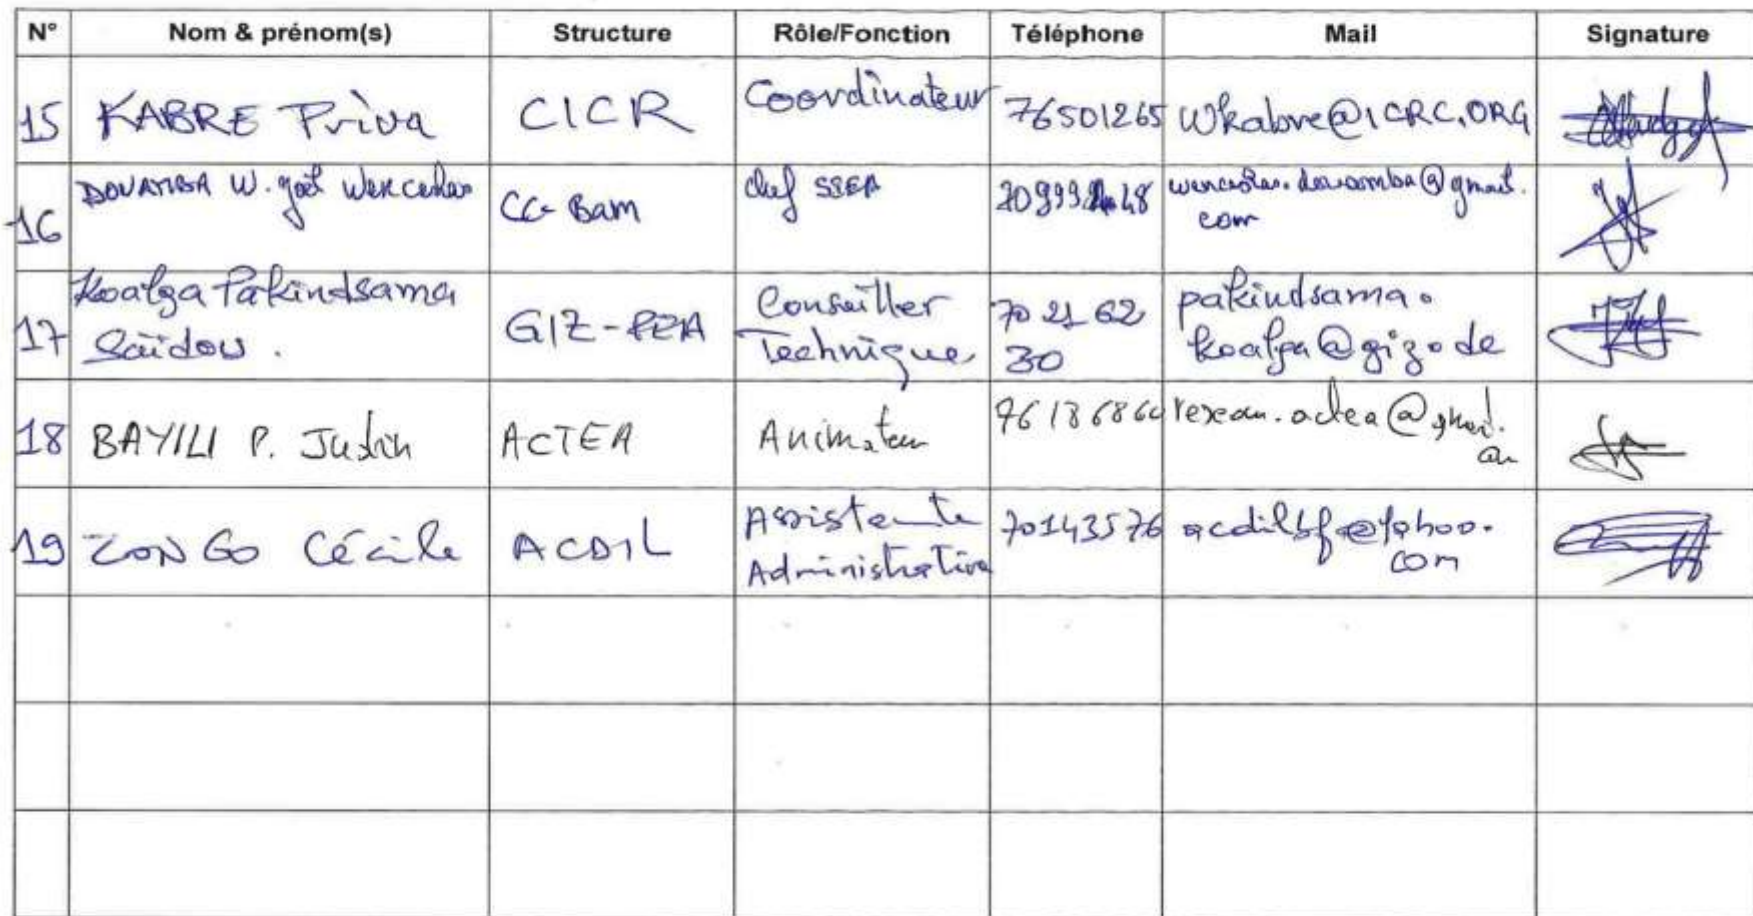 N° Nom & prénom(s) Structure Rôle/Fonction Téléphone Mail Signature
15 KABRE Priva CICR Coordinateur 76501265 Wkabre@ICRC.ORG
16 DOUAMBA W. Joël Wenceslas CC-Bam chef SSEA
com
17 Koalga Pakindsama Saïdou. GIZ-PEA Conseiller Technique 70 21 62 30 pakindsama.
koalga@giz.de
18 BAYILI P. Justin ACTEA Animateur
19 ZONGO Cécile ACDIL Assistante Administrative 70143576 acdilbf@yahoo.
com